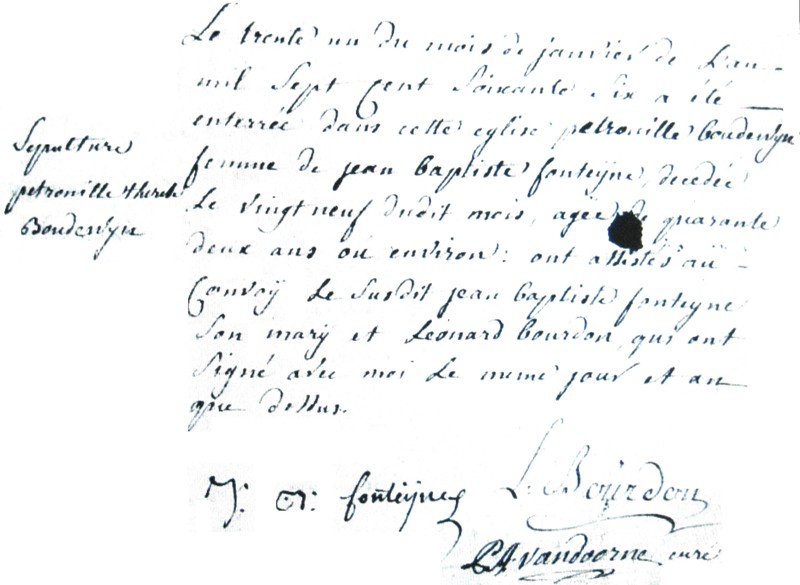 Sepulture
petronille therese
Boudewÿn
Le trente un du mois de janvier de L'an
mil Sept Cent Soixante Six a été
enterrée dans cette eglise petronille boudewÿn
femme de jean baptiste fonteÿne, decedée
Le vingt neuf dudit mois, agée de quarante
deux ans ou environ: ont assistés au
Convoÿ Le Susdit jean baptiste fonteÿne
Son marÿ et Leonard bourdon, qui ont
Signé avec moi Le meme jour et an
que dessus.
J: B: fonteijne
L. Bourdon
P.A. vandoorne curé